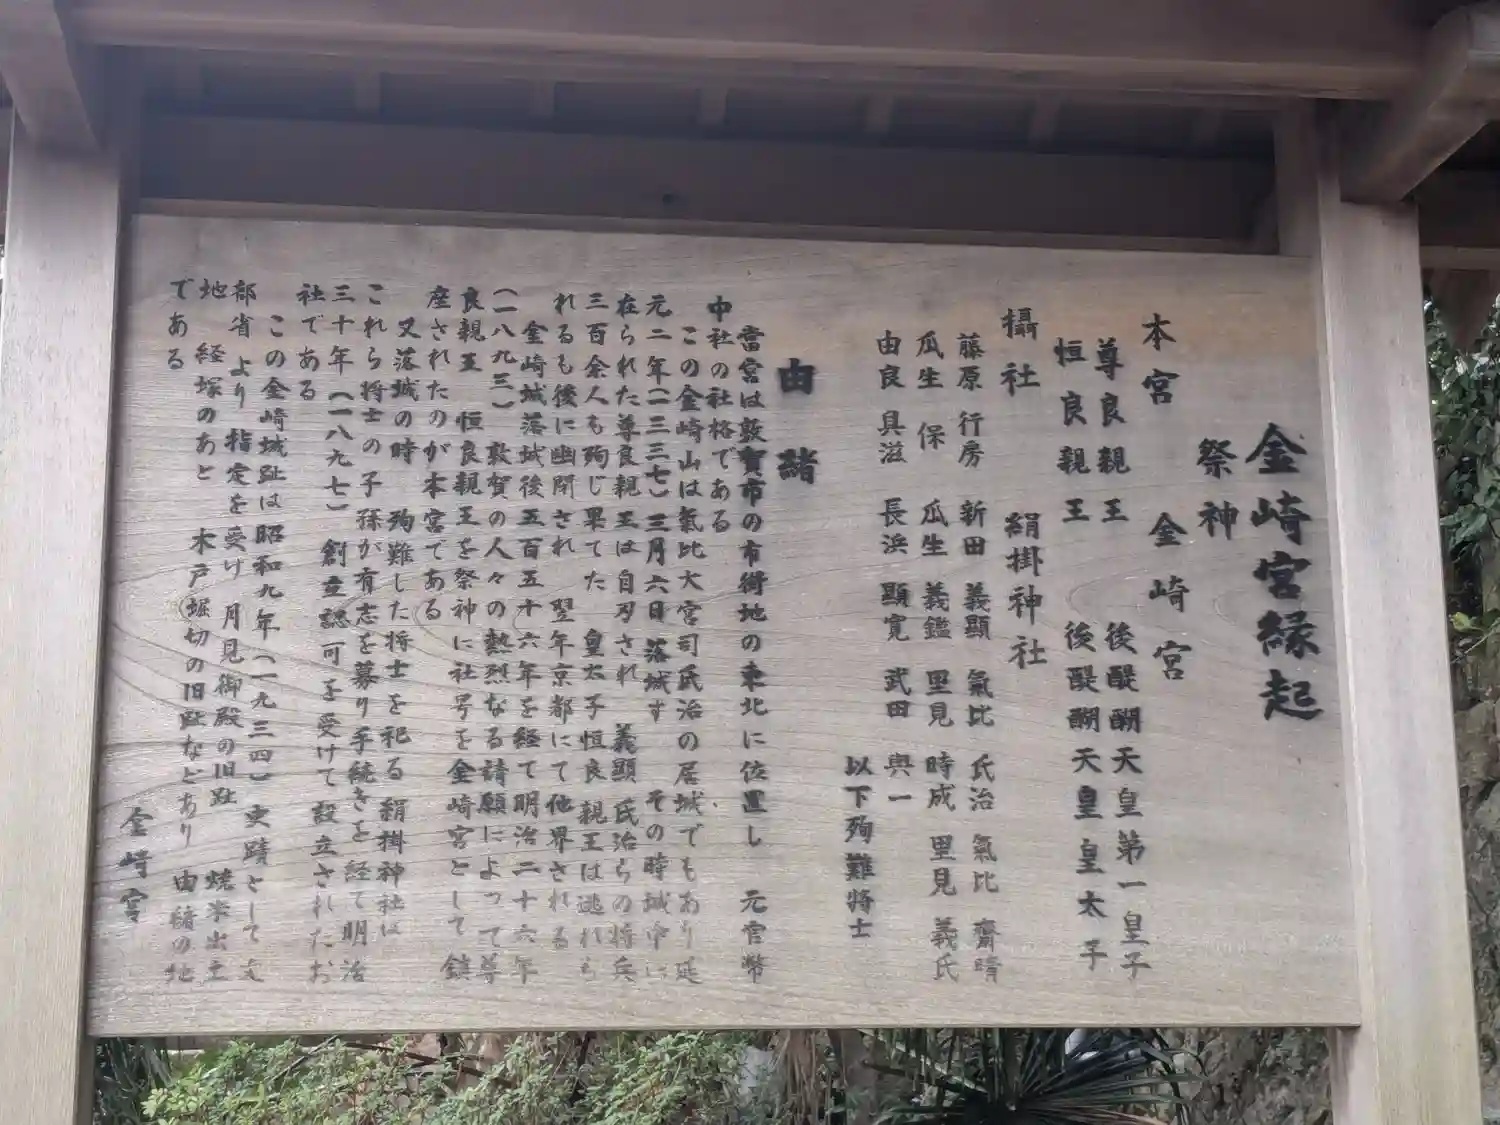 金崎宮縁起
祭神
本宮 金崎宮
尊良親王 後醍醐天皇第一皇子
恒良親王 後醍醐天皇皇太子
攝社 絹掛神社
藤原行房 新田義顯 氣比氏治 氣比齋晴
瓜生保 瓜生義鑑 里見時成 里見義氏
由良具滋 長浜顯寛 武田與一
以下殉難将士
由緒
當宮は敦賀市の市街地の東北に位置し 元官幣
中社の社格である
この金崎山は氣比大宮司氏治の居城でもあり延
元二年(一三三七)三月六日落城す その時城中に
在られた尊良親王は自刃され 義顯 氏治らの将兵
三百余人も殉じ果てた 皇太子恒良親王は逃れら
れるも後に幽閉され 翌年京都にて他界される
金崎城落城後五百五十六年を経て明治二十六年
(一八九三)敦賀の人々の熱烈なる請願によって尊
良親王 恒良親王を祭神に社号を金崎宮として 鎮
座されたのが本宮である
又落城の時 殉難した将士を祀る絹掛神社は
これら将士の子孫が有志を募り手続きを経て明治
三十年(一八九七)創立認可を受けて設立されたお
社である
この金崎城趾は昭和九年(一九三四)史蹟として文
部省より指定を受け 月見御殿の旧趾 焼米出土
地 経塚のあと 木戸堀切の旧趾などあり 由緒の地
である
金崎宮